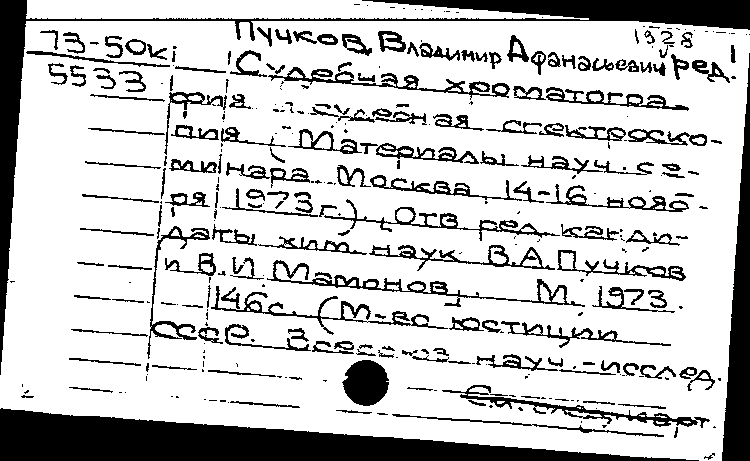 Пучков, Владимир Афанасьевич, ред.
1928
73-50к
5533
Судебная хроматогра-
фия и судебная спектроско-
пия (Материалы науч. се-
минара. Москва, 14-16 нояб-
ря 1973г.). [Отв ред. канди-
даты хим. наук В.А.Пучков
и В.И Мамонов]. М. 1973.
146с. (М-во юстиции
СССР. Всесоюз науч.-исслед.
См. след. карт.